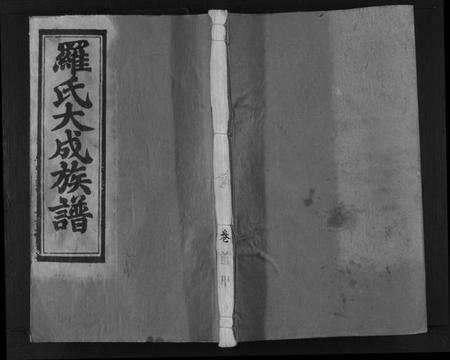 羅氏大成族譜
卷首